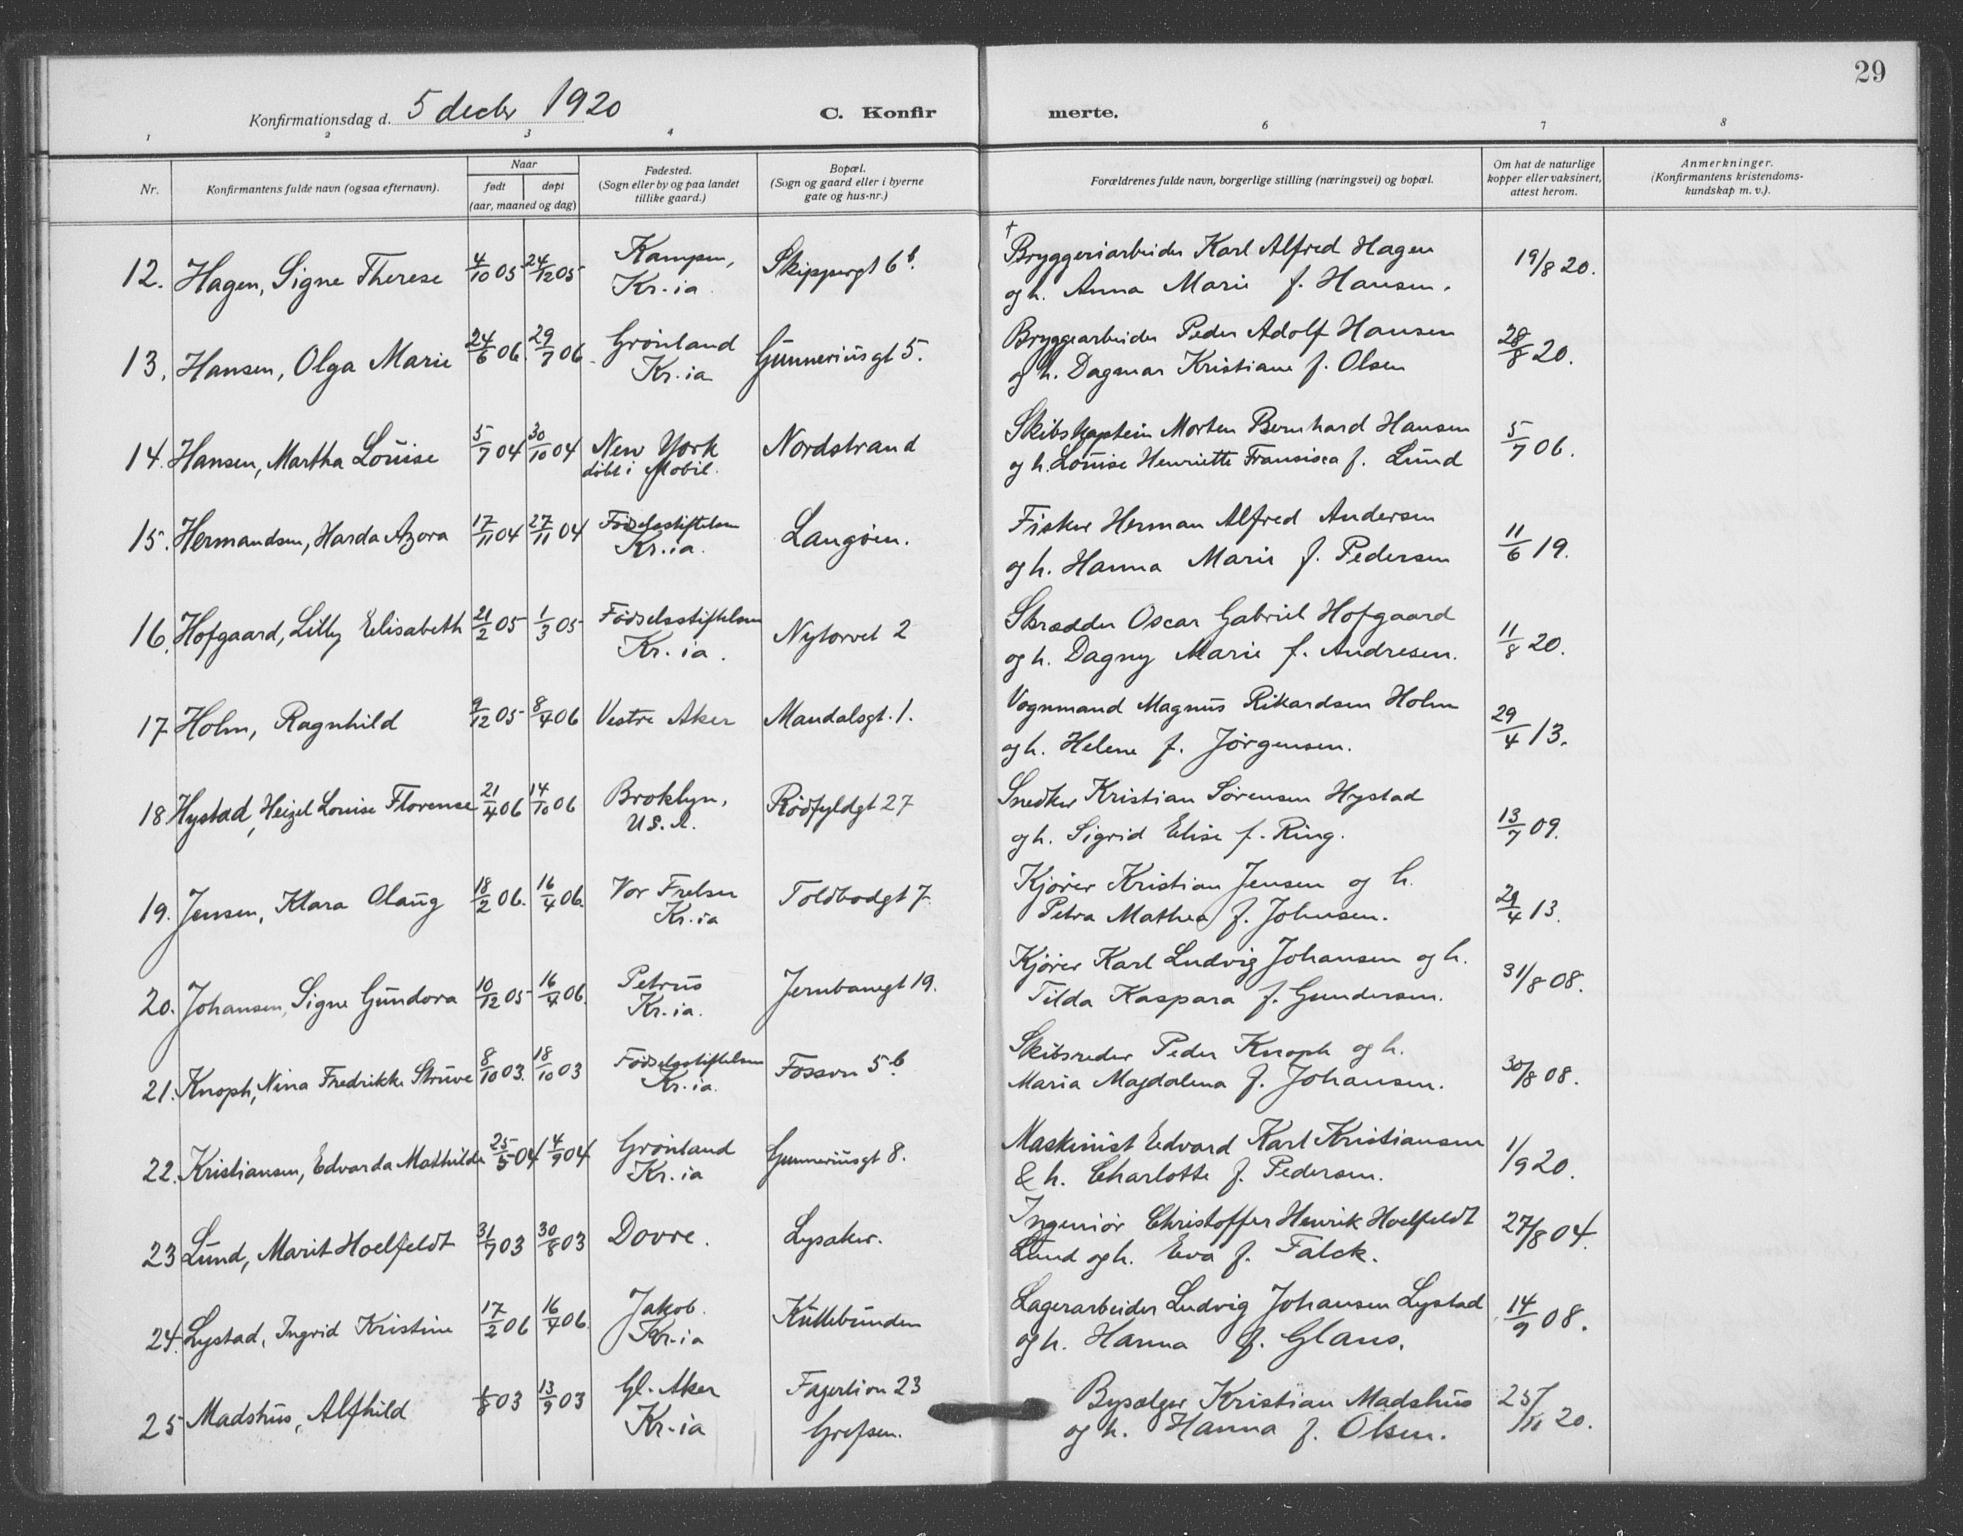 29
Konfirmationsdag d. 5 decbr 1920
C. Konfir merte.
1 2 3 4 6 7 8
Nr.
Konfirmantens fulde navn (ogsaa efternavn).
Naar
født
døpt
(aar, maaned og dag)
Fødested.
(Sogn eller by og paa landet
tillike gaard.)
Bopæl.
(Sogn og gaard eller i byerne
gate og hus-nr.)
Forældrenes fulde navn, borgerlige stilling (næringsvei) og bopæl.
Om hat de naturlige
kopper eller vaksinert,
attest herom.
Anmerkninger.
(Konfirmantens kristendoms-
kundskap m. v.).
12. Hagen, Signe Therese 4/10 05 24/12 05 Kampen, Kr.ia. Skippergt 6b.
† Bryggeriarbeider Karl Alfred Hagen
og h. Anna Marie f. Hansen. 19/8 20.
13. Hansen, Olga Marie 24/6 06. 29/7 06. Grønland Kr.ia Gunneriusgt 5.
Bryggearbeider Peder Adolf Hansen
og h. Dagmar Kristiane f. Olsen 28/8 20.
14. Hansen, Martha Louise 5/7 04 30/10 04 New York døbt i Mobil. Nordstrand
Skibskaptein Morten Bernhard Hansen
og h. Louise Henriette Fransisca f. Lund 5/7 06.
15. Hermandsen, Harda Azora 17/11 04 27/11 04 Fødselsstiftelsen Kr.ia. Langøien.
Fisker Herman Alfred Andersen
og h. Hanna Marie f. Pedersen 11/6 19.
16. Hofgaard, Lilly Elisabeth 21/2 05 1/3 05 Fødselsstiftelsen Kr.ia. Nytorvet 2
Skrædder Oscar Gabriel Hofgaard
og h. Dagny Marie f. Andresen. 11/8 20.
17. Holm, Ragnhild 9/12 05 8/4 06 Vestre Aker Mandalsgt. 1.
Vognmand Magnus Rikardsen Holm
og h. Helene f. Jørgensen. 29/4 13.
18 Hystad, Heizel Louise Florense 21/4 06 14/10 06 Broklyn, U.S.A. Rødfyldgt 27
Snedker Kristian Sørensen Hystad
og h. Sigrid Elise f. Ring. 13/7 09.
19. Jensen, Klara Olaug 18/2 06. 16/4 06. Vor Frelser Kr.ia Toldbodgt 7.
Kjører Kristian Jensen og h.
Petra Mathea f. Johnsen. 29/4 13.
20. Johansen, Signe Gundora 10/12 05 16/4 06. Petrus Kr.ia. Jernbanegt 19.
Kjører Karl Ludvig Johansen og h.
Tilda Kaspara f. Gundersen. 31/8 08.
21. Knoph, Nina Fredrikke Struve 8/10 03. 18/10 03 Fødselsstiftelsen Kr.ia. Fossvn 5b.
Skibsreder Peder Knoph og h.
Maria Magdalena f. Johansen. 30/8 08.
22. Kristiansen, Edvarda Mathilde 25/5 04 4/9 04 Grønland Kr.ia Gunneriusgt 8.
Maskinist Edvard Karl Kristiansen
& h. Charlotte f. Pedersen. 1/9 20.
23 Lund, Marit Hoelfeldt 31/7 03 30/8 03 Dovre. Lysaker.
Ingeniør Christoffer Henrik Hoelfeldt
Lund og h. Eva f. Falck. 27/8 04.
24. Lystad, Ingrid Kristine 17/2 06 16/4 06. Jakob. Kr.ia Kullebunden
Lagerarbeider Ludvig Johansen Lystad
og h. Hanna f. Glans. 14/9 08.
25 Madshus, Alfhild 1/8 03 13/9 03 Gl. Aker Kr.ia Fagerlivn 23 Grefsen.
Bysælger Kristian Madshus
og h. Hanna f. Olsen. 25/11 20.